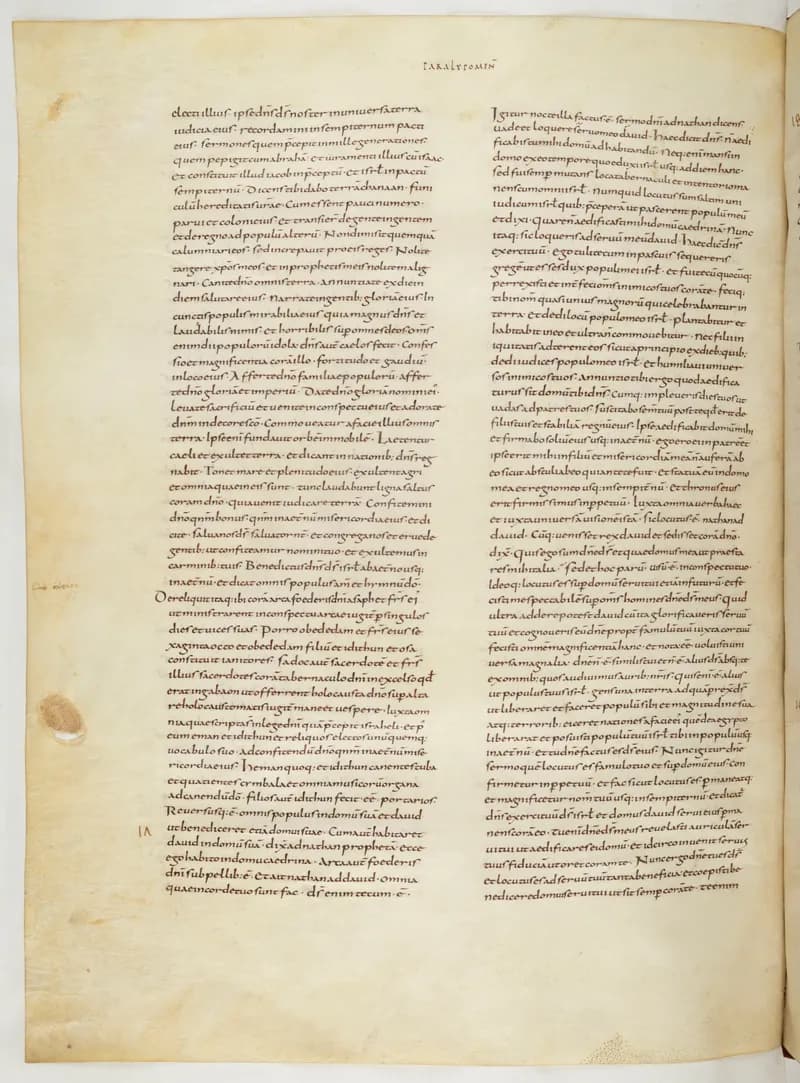 PARALYPOMEN̄
electi illius. ipse dn̄s ds̄ noster in uniuersa terra
iudicia eius. recordamini in sempiternum pacti
eius. sermones quem p̄cepit in mille generationes.
quem pepigit cum abrahā. et iuramenti illius cū isaac.
et constituit illud iacob in p̄ceptū. et isrł in pactū
sempiternū. Dicens tibi dabo terrā chanaan. funi
culū hereditatis urae. Cum essent pauci numero.
parui et coloni eius. et transier̄ de gente in gentem
et de regno ad populū alterū. Non dimisit quemquā
calumniari eos. sed increpauit pro eis reges. Nolite
tangere xp̄os meos. et in prophetis meis nolite malig
nari. Cantate dn̄o omnis terra. Annuntiate ex die in
diem salutare eius. Narrate in gentib; gloriā eius. In
cunctis populis mirabilia eius quia magnus dn̄s et
laudabilis nimis. et horribilis sup omnes deos. Om̄s
enim dii populorū idola. dn̄s aūt caelos fecit. Confes
sio et magnificentia corā illo. fortitudo et gaudiū
in loco eius. Afferte dn̄o familiae populorū. affer
te dn̄o gloriā et imperiū. Date dn̄o gloriā nomini ei.
leuate sacrificiū et uenite in conspectu eius et adorate
dn̄m in decore sc̄o. Commoueatur a facie illius omnis
terra. Ipse enī fundauit orbē immobilē. Laetentur
caeli et exultet terra. et dicant in nationib; dn̄s reg
nabit. Tonet mare et plenitudo eius. exultent agri
et omnia quae in eis sunt. tunc laudabunt ligna saltus
coram dn̄o. quia uenit iudicare terrā. Confitemini
dn̄o qn̄m bonus. qn̄m in aet̄nū misericordia eius. et di
cite. salua nos ds̄ saluator nr̄. et congrega nos et erue de
gentib; ut confiteamur nomini tuo. et exultemus in
carminib; tuis. Benedictus dn̄s ds̄ isrł ab aet̄no usq;
in aet̄nū. et dicat omnis populus am̄ et hymnū dn̄o.
Dereliquit itaq; ibi corā arca foederis dn̄i asaph et frs̄ ei
ut ministrarent in conspectu arcae iugit̄ p singulos
dies et uices suas. Porro obededam et frs̄ eius se
xaginta octo et obededam filiū et idithun et osa
constituit ianitores. sadoc aūt sacerdotē et frs̄
illius sacerdotes corā tabernaculo dn̄i in excelso qđ
erat in gabaon ut offerrent holocausta dn̄o sup alta
re holocaustomatis iugit̄ mane et uespere. iuxta om
nia quae scripta s̄ in lege dn̄i quā p̄cepit israheli. et p
eum eman et idithun et reliquos electos unū quemq;
uocabulo suo. Ad confitendū dn̄o qn̄m in aet̄nū mise
ricordia eius. Heman quoq; et idithun canentes tuba
et quatientes cymbala et omnia musicorū organa
ad canendū dō. filios aūt idithun fecit eē portarios.
Reuersusq; ē omnis populus in domū suā et dauid
ut benediceret etiā domui suae. Cum aūt habitaret
dauid in domu suā. dixit ad nathan prophetā. ecce
ego habito in domu caedrina. Arca aūt foederis
dn̄i sub pellib; ē. Et ait nathan ad dauid. omnia
quae in corde tuo sunt fac. ds̄ enim tecum ē.
Igitur nocte illa factus ē sermo dn̄i ad nathan dicens.
uade et loquere seruo meo dauid. Haec dicit dn̄s. n̄ aedi
ficabis tu mihi domū ad habitandū. Neq; enī mansi in
domo ex eo tempore quo eduxi isrł usq; ad diem hanc.
sed fui semp mutans loca tabernaculi et in tentorio ma
nens cum omni isrł. Numquid locutus sum saltim uni
iudicum isrł quib; p̄cepera ut pascerent populū meū
et dixi. Quare n̄ aedificastis mihi domū caedrinā. Nunc
itaq; sic loqueris ad seruū meū dauid. Haec dic̄ dn̄s
exercituū. ego tuli te cum in pascuis sequereris
gregē ut esses dux populi mei isrł. et fui tecū quocūq;
perrexisti et int̄feci om̄s inimicos tuos corā te. feciq;
tibi nom̄ quasi unius magnorū qui celebrantur in
terra. Et dedi locū populo meo isrł. plantabitur et
habitabit in eo et ultra n̄ commouebitur. Nec filii in
iquitatis adterent eos sicut a principio ex dieb; quib;
dedi iudices populo meo isrł. et humiliaui uniuer
sos inimicos tuos. Annuntio tibi ergo quod aedifica
turus sit domū tibi dn̄s. Cumq; impleueris dies tuos ut
uadas ad patres tuos. suscitabo sem̄ tuū post te qđ erit de
filiis tuis et stabilia regnū eius. Ipse aedificabit domū mihi
et firmabo soliū eius usq; in aet̄nū. ego ero ei in patrē et
ipse erit mihi in filiū et misericordiā meā n̄ auferā ab
eo sicut abstuli ab eo qui ante te fuit. et statuā eū in domo
mea et regno meo usq; in sempit̄nū. et thronus eius
erit firmissimus in ppetuū. Iuxta omnia uerba haec
et iuxta uniuersā uisionē istā. sic locutus ē nathan ad
dauid. Cūq; uenisset rex dauid et sedisset corā dn̄o.
dix̄. Quis ego sum dn̄e ds̄ et quae domus mea ut praesta
res mihi talia. sed et hoc parū uisū ē in conspectu tuo
Ideoq; locutus es sup domū serui tui etiā in futurū. et fe
cisti me spectabilē sup om̄s homines dn̄e ds̄ meus. Quid
ultra addere potest dauid cū ita glorificaueris seruū
tuū et cognoueris eū dn̄e propt̄ famulū tuū iuxta cor tuū
fecisti omnē magnificentiā hanc. et nota eē uoluisti uni
uersa magnalia. dn̄e n̄ ē similis tui et n̄ ē alius ds̄ absq; te
ex omnib; quos audiuimus aurib; nr̄is. Quis enī ē alius
ut populus tuus isrł. gens una in terra ad quā prex̄ ds̄
ut liberaret et faceret populū sibi et magnitudine sua
atq; terrorib; eiceret nationes a facie ei quē de aegypto
liberarat. et posuisti populū tuū isrł tibi in populū usq;
in aet̄nū. et tu dn̄e factus es ds̄ eius. Nunc igitur dn̄e
sermo quē locutus es famulo tuo et sup domū eius con
firmetur in ppetuū. et fac sicut locutus es. p̄maneatq;
et magnificetur nom̄ tuū usq; in sempiternū. et dicat̄
dn̄s exercituū ds̄ isrł. et domus dauid serui eius pma
nens corā eo. Tu enī dn̄e ds̄ meus reuelasti auriculā ser
ui tui ut aedificares ei domū. et idcirco inuenit seruus
tuus fiduciā ut oret corā te. Nunc ergo dn̄e tu es ds̄.
et locutus es ad seruū tuū tanta beneficia. et coepisti be
nedicere domui serui tui ut sit semp corā te. te enim